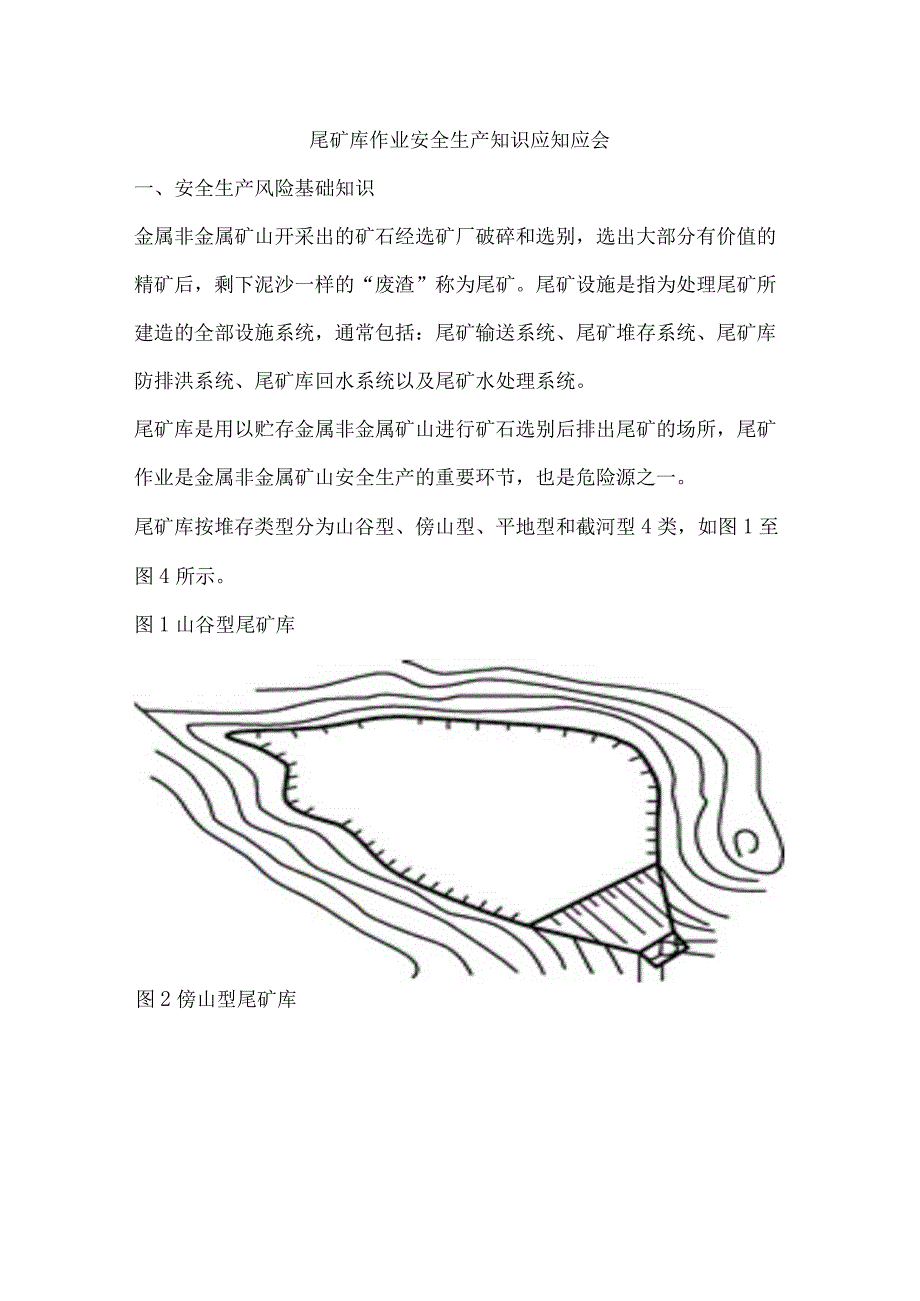 尾矿库作业安全生产知识应知应会
一、安全生产风险基础知识
金属非金属矿山开采出的矿石经选矿厂破碎和选别，选出大部分有价值的
精矿后，剩下泥沙一样的“废渣”称为尾矿。尾矿设施是指为处理尾矿所
建造的全部设施系统，通常包括：尾矿输送系统、尾矿堆存系统、尾矿库
防排洪系统、尾矿库回水系统以及尾矿水处理系统。
尾矿库是用以贮存金属非金属矿山进行矿石选别后排出尾矿的场所，尾矿
作业是金属非金属矿山安全生产的重要环节，也是危险源之一。
尾矿库按堆存类型分为山谷型、傍山型、平地型和截河型 4 类，如图 1 至
图 4 所示。
图 1 山谷型尾矿库
图 2 傍山型尾矿库